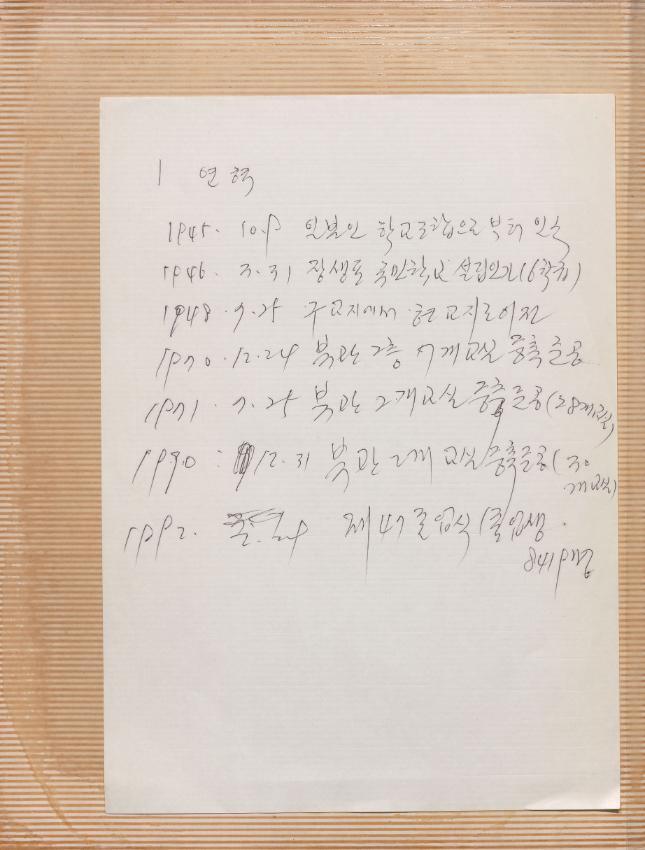 1 연혁
1945. 10.9 일본인 학교조합으로부터 인수
1946. 3.31 장생포 국민학교 설립인가(6학급)
1948. 9.25 구교지에서 현교지로 이전
1970. 12.24 북관 2층 7개교실 증축 준공
1971. 9.25 북관 2개교실 증축준공(28개교실)
1990. 12.31 북관 2개 교실 증축준공(30
개교실)
1992. 제47 졸업식 (졸업생.
8419명